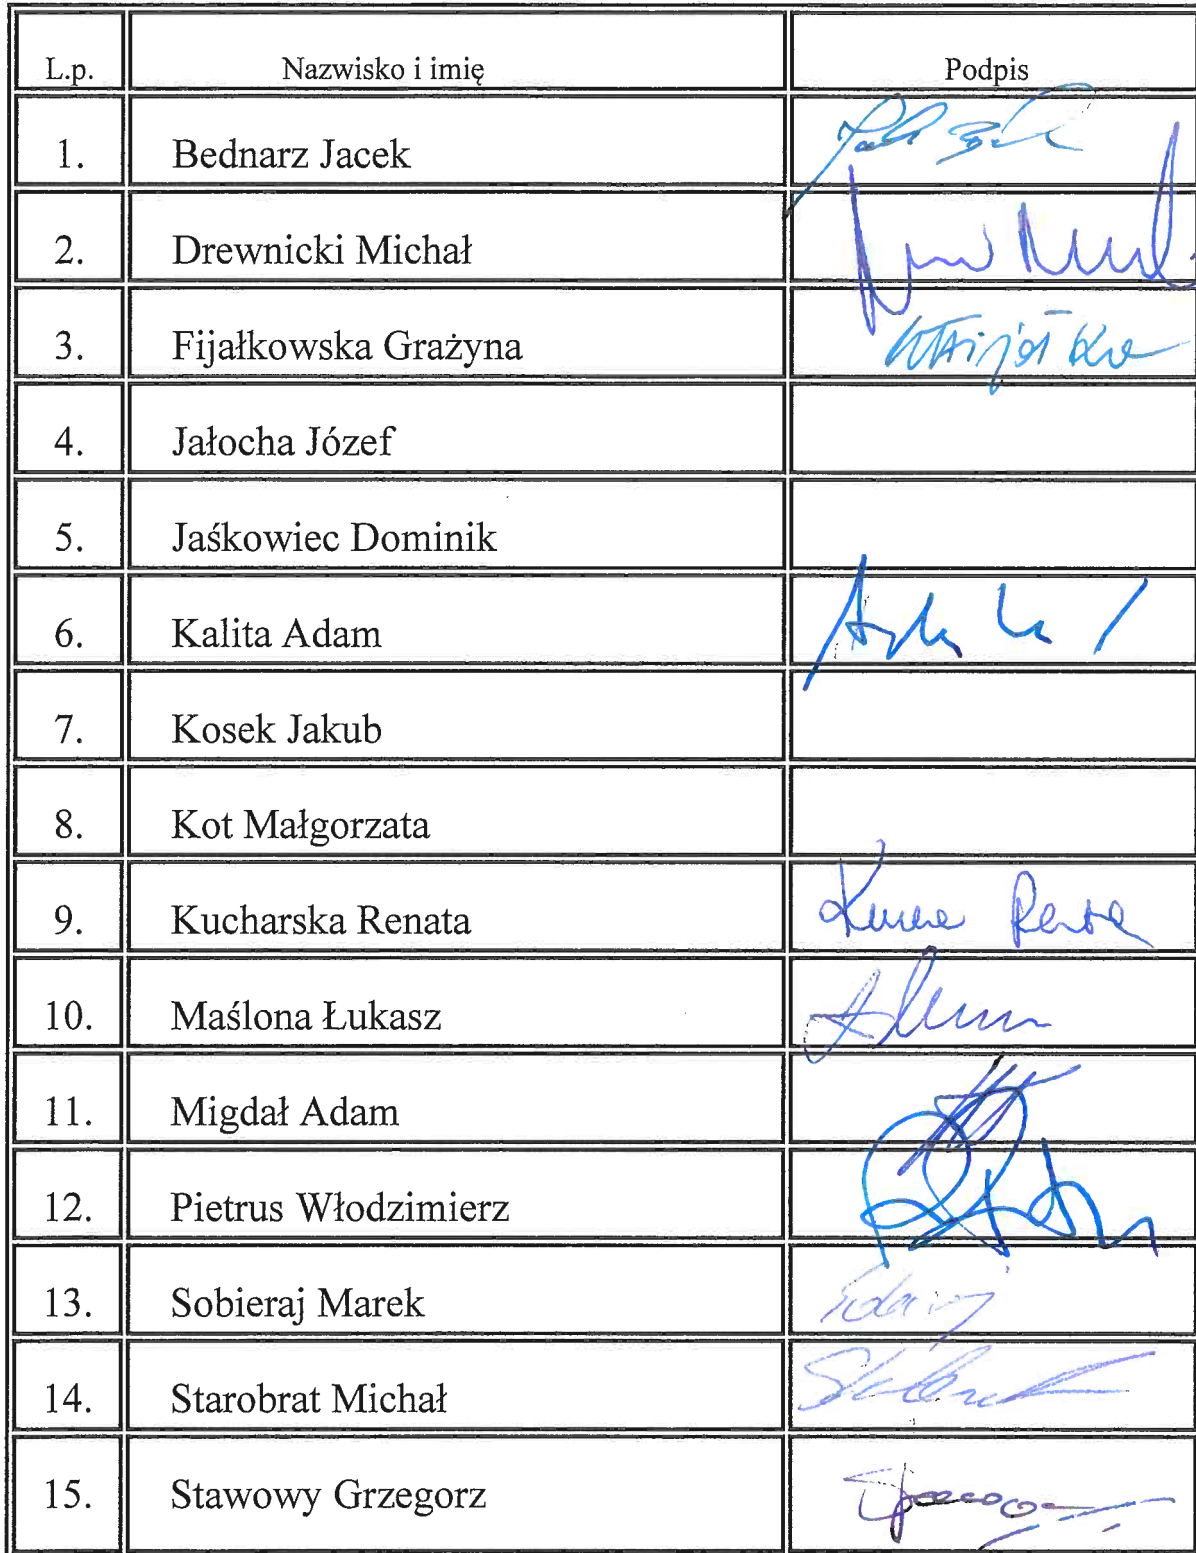 L.p. Nazwisko i imię Podpis
1. Bednarz Jacek
2. Drewnicki Michał
3. Fijałkowska Grażyna
4. Jałocha Józef
5. Jaśkowiec Dominik
6. Kalita Adam
7. Kosek Jakub
8. Kot Małgorzata
9. Kucharska Renata
10. Maślona Łukasz
11. Migdał Adam
12. Pietrus Włodzimierz
13. Sobieraj Marek
14. Starobrat Michał
15. Stawowy Grzegorz